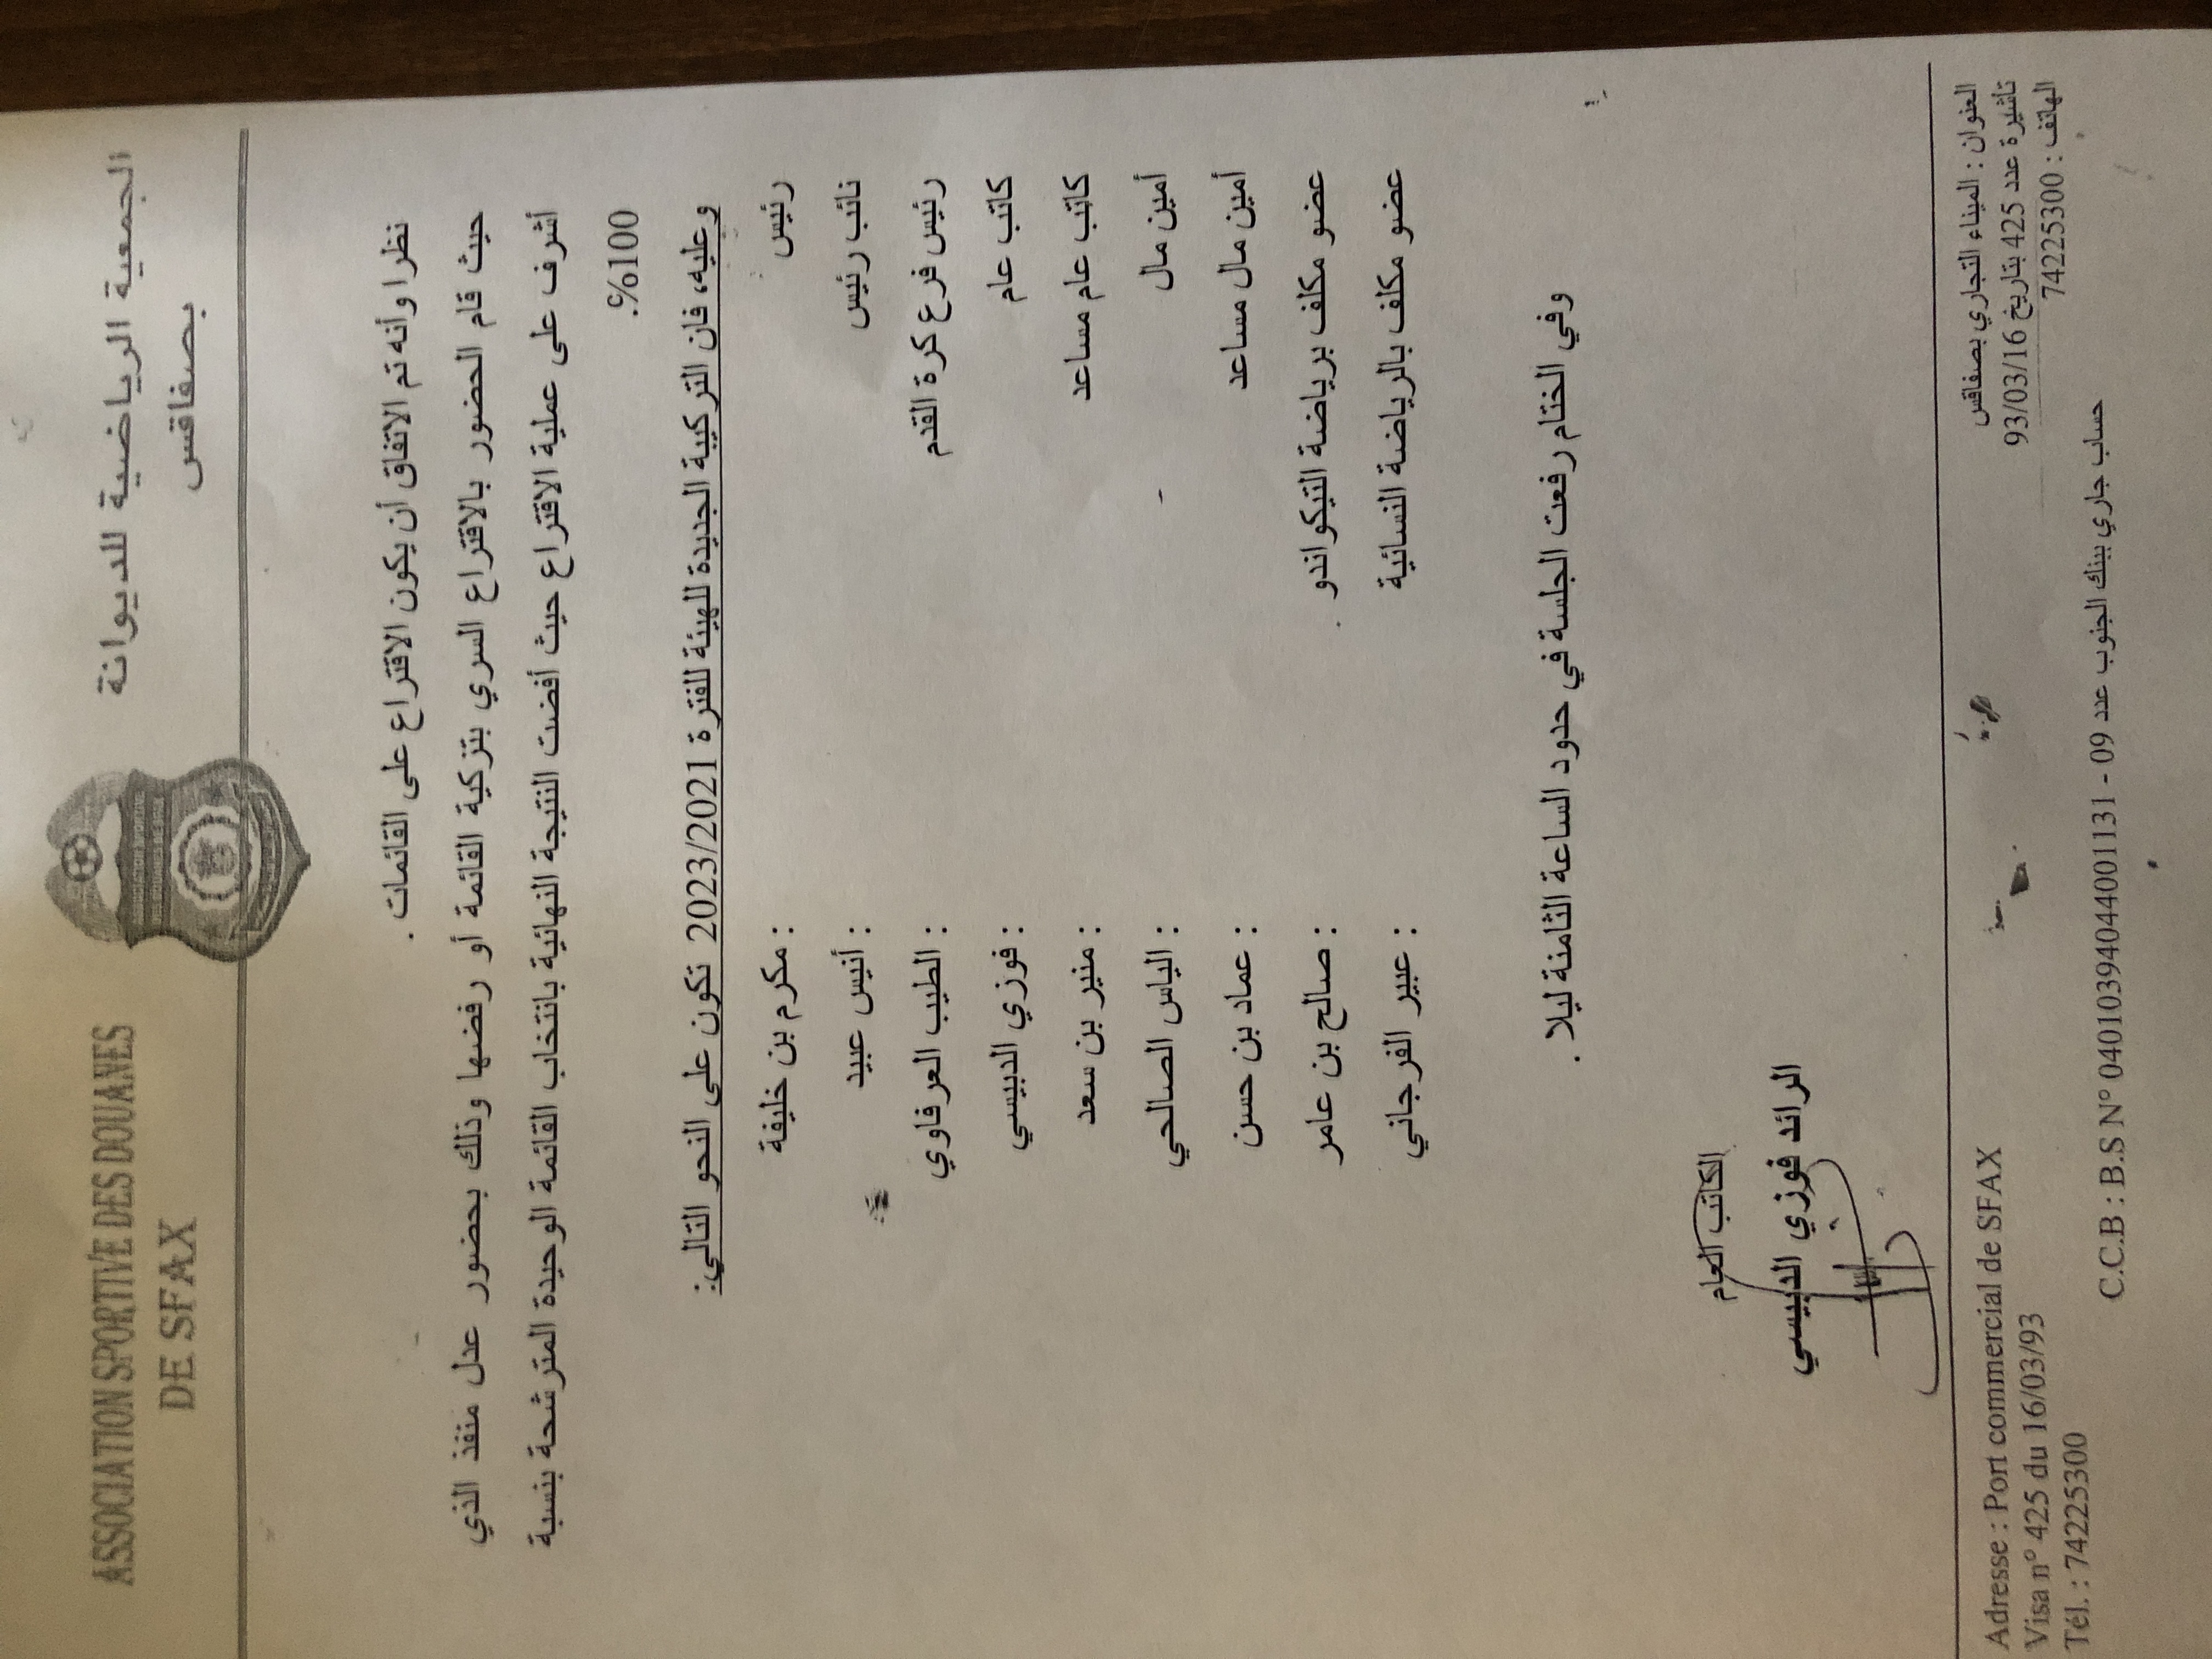 ASSOCIATION SPORTIVE DES DOUANES
DE SFAX
الجمعية الرياضية للديوانة
بصفاقس
نظرا وأنه تم الاتفاق أن يكون الاقتراع على القائمات .
حيث قام الحضور بالاقتراع السري بتزكية القائمة أو رفضها وذلك بحضور عدل منفذ الذي
أشرف على عملية الاقتراع حيث أفضت النتيجة النهائية بانتخاب القائمة الوحيدة المترشحة بنسبة
100%.
وعليه، فان التركيبة الجديدة للهيئة للفترة 2023/2021 تكون على النحو التالي:
رئيس : مكرم بن خليفة
نائب رئيس : أنيس عبيد
رئيس فرع كرة القدم : الطيب العرفاوي
كاتب عام : فوزي الدبيسي
كاتب عام مساعد : منير بن سعد
أمين مال : الياس الصالحي
أمين مال مساعد : عماد بن حسن
عضو مكلف برياضة التيكواندو : صالح بن عامر
عضو مكلف بالرياضة النسائية : عبير الفرجاني
وفي الختام رفعت الجلسة في حدود الساعة الثامنة ليلا .
الكاتب العام
الرائد فوزي الدبيسي
Adresse : Port commercial de SFAX
Visa n° 425 du 16/03/93
Tél. : 74225300
العنوان : الميناء التجاري بصفاقس
تأشيرة عدد 425 بتاريخ 93/03/16
الهاتف : 74225300
C.C.B : B.S N° 04010394044001131 - 09 حساب جاري ببنك الجنوب عدد